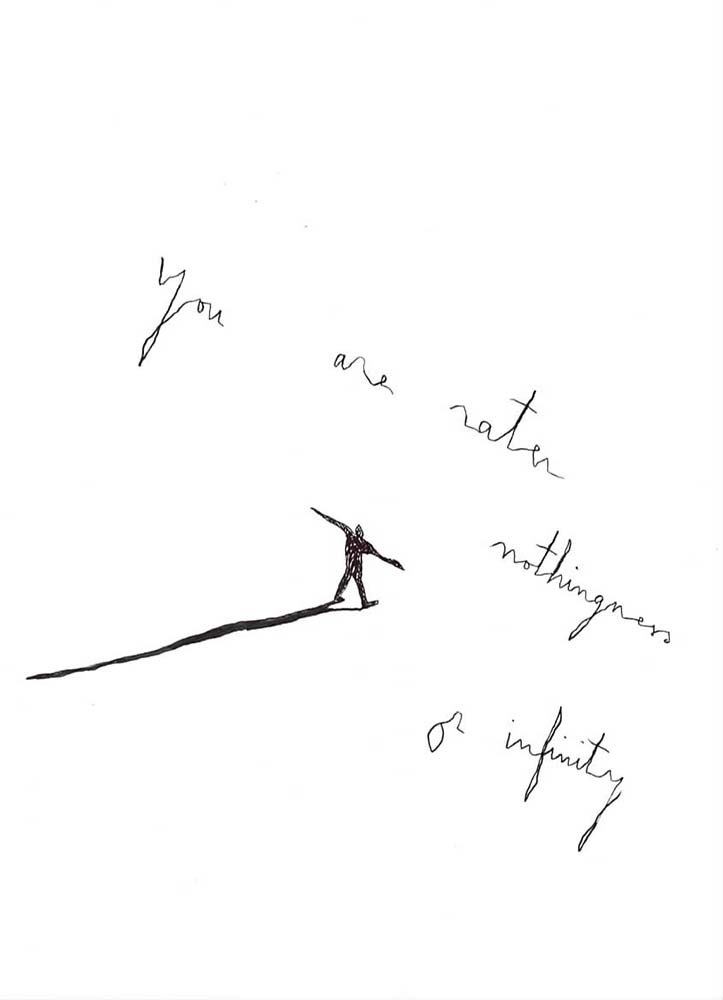 You are rater
nothingness
or infinity